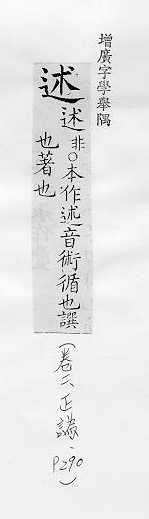 增廣字學舉隅
述述非○本作述音術循也譔
也著也
(卷二正譌、P290)